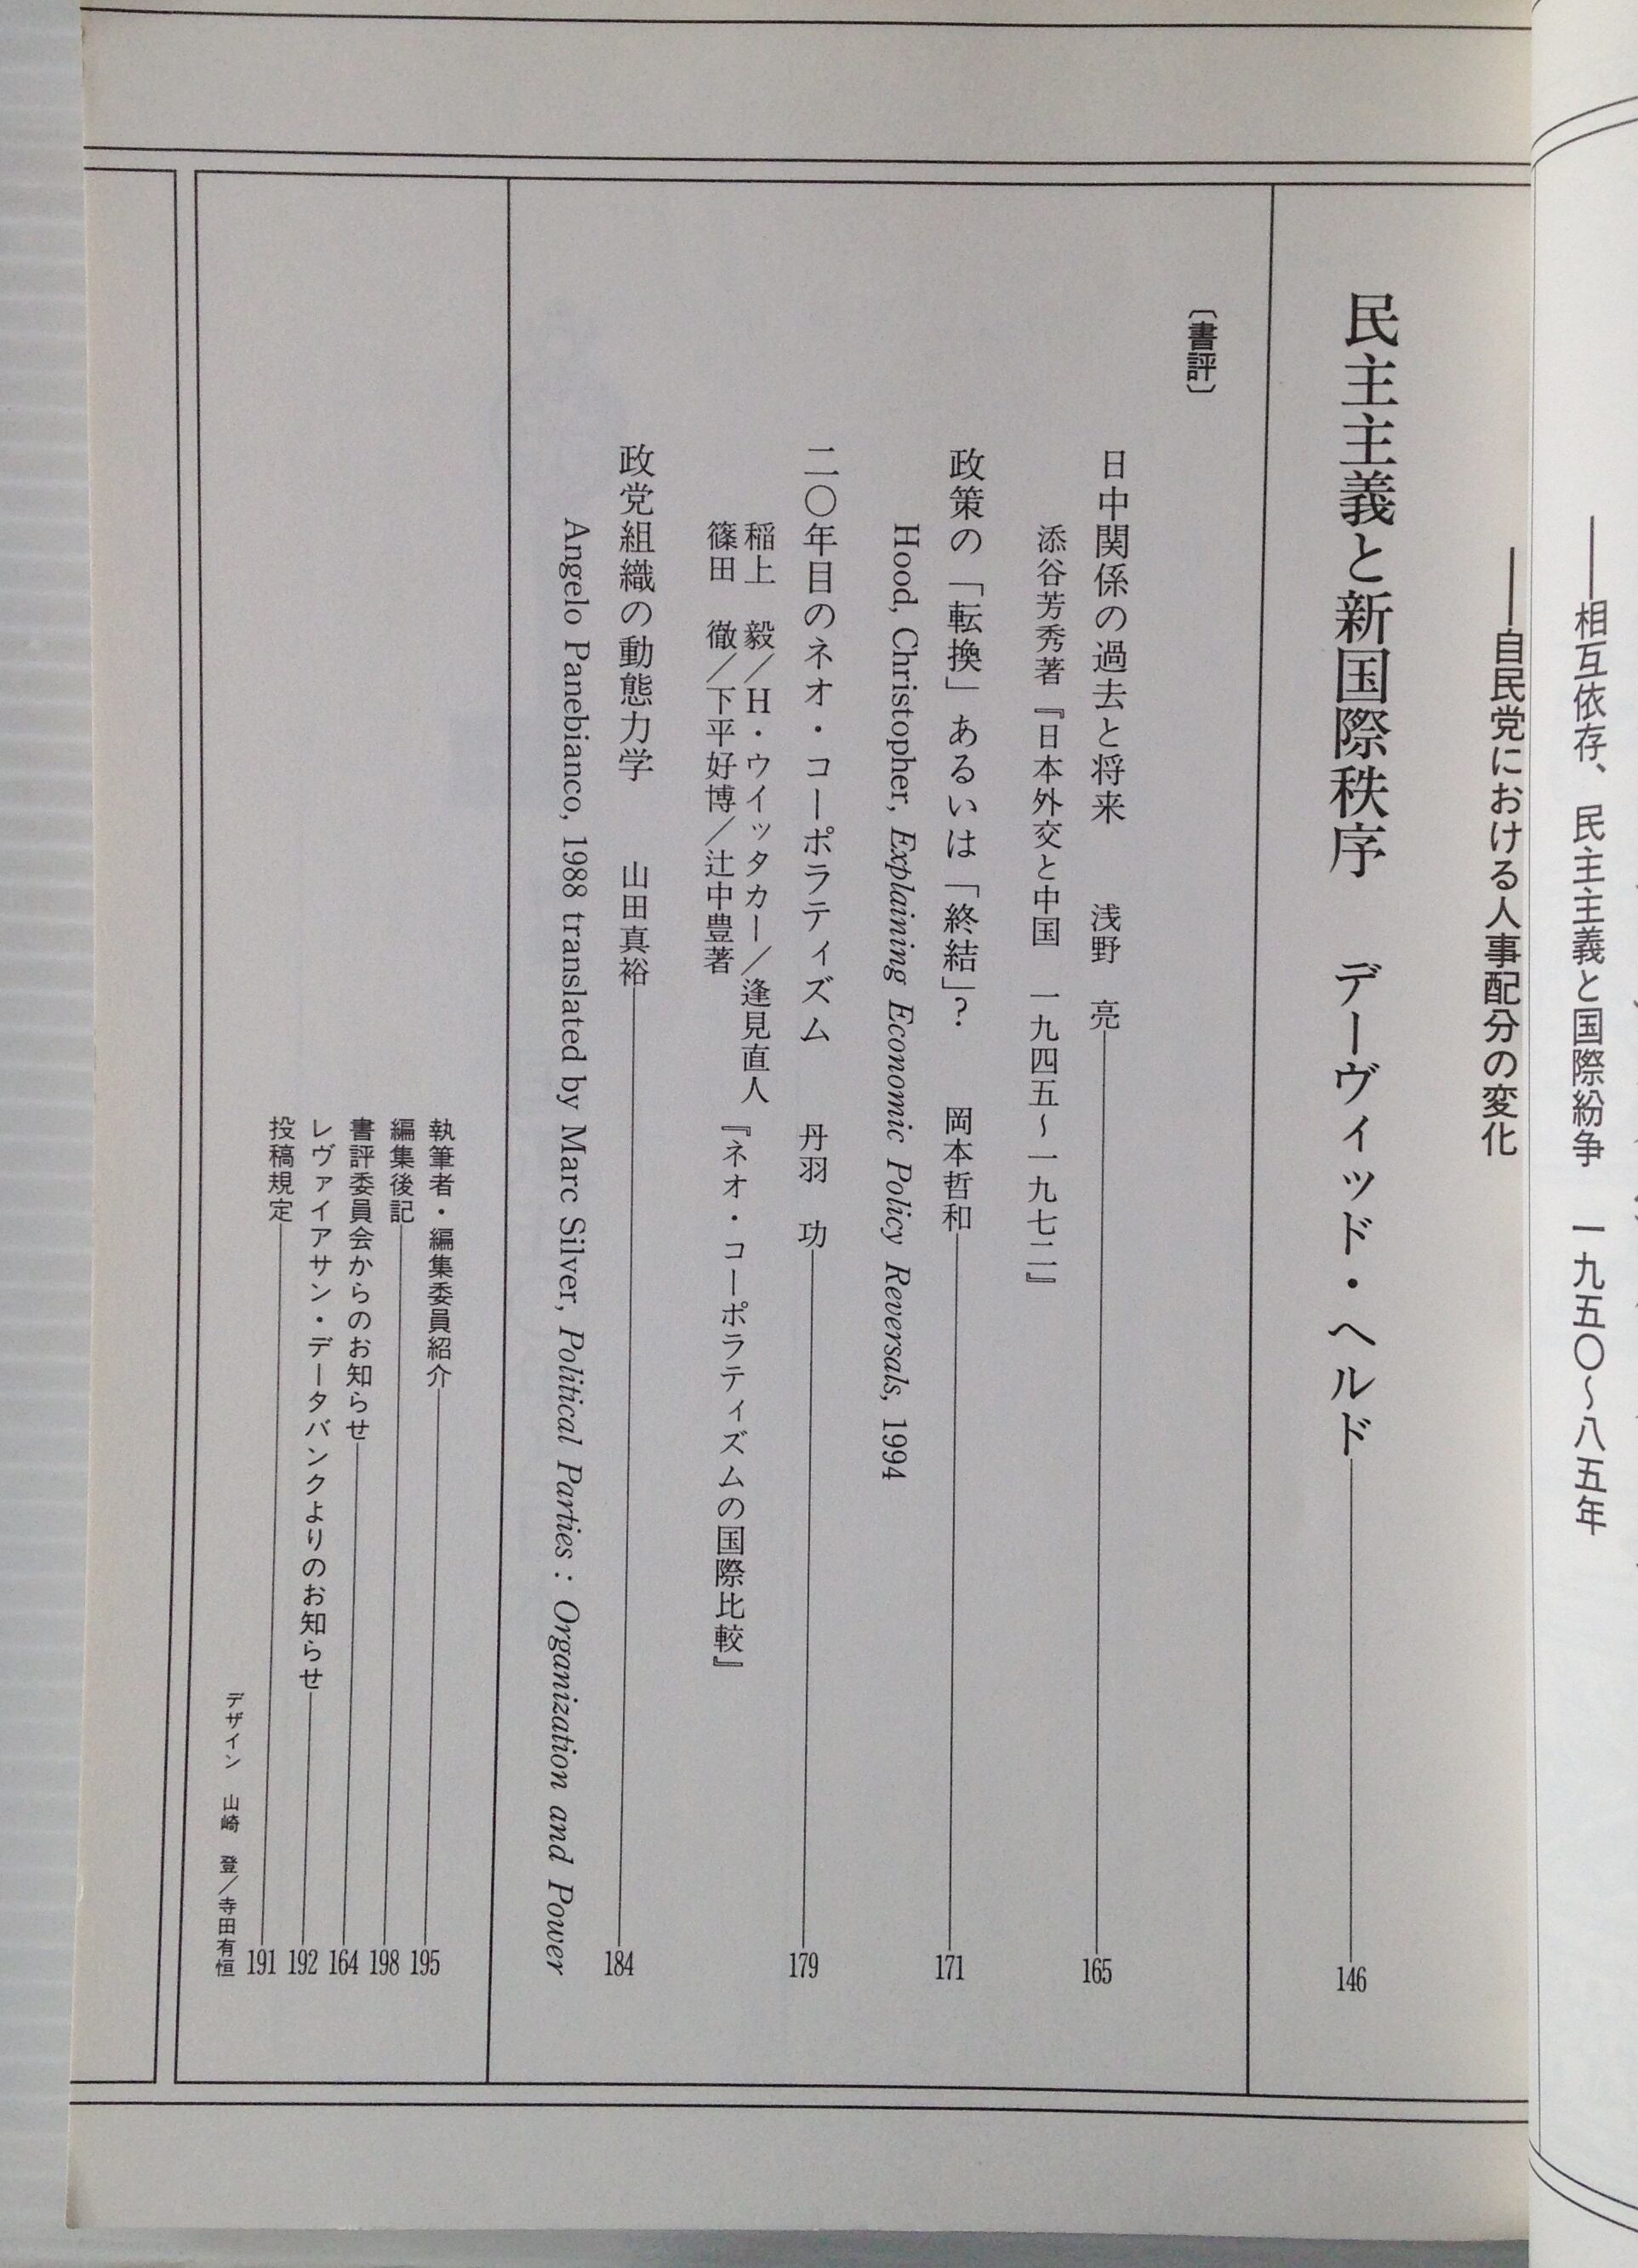 ――相互依存、民主主義と国際紛争　一九五〇〜八五年
――自民党における人事配分の変化
民主主義と新国際秩序　デーヴィッド・ヘルド――146
〔書評〕
日中関係の過去と将来　浅野　亮――165
添谷芳秀著『日本外交と中国　一九四五〜一九七二』
政策の「転換」あるいは「終結」？　岡本哲和――171
Hood, Christopher, Explaining Economic Policy Reversals, 1994
二〇年目のネオ・コーポラティズム　丹羽　功――179
稲上　毅／H・ウイッタカー／逢見直人
篠田　徹／下平好博／辻中豊著
『ネオ・コーポラティズムの国際比較』
政党組織の動態力学　山田真裕――184
Angelo Panebianco, 1988 translated by Marc Silver, Political Parties : Organization and Power
執筆者・編集委員紹介――195
編集後記――198
書評委員会からのお知らせ――164
レヴァイアサン・データバンクよりのお知らせ――192
投稿規定――191
デザイン　山崎　登／寺田有恒